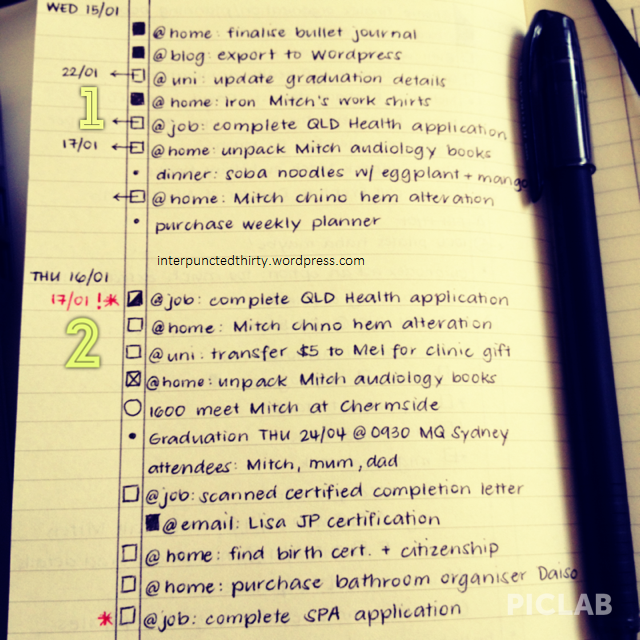 WED 15/01
@home: finalise bullet journal
@blog: export to Wordpress
22/01 @uni: update graduation details
1
@home: Iron Mitch's work shirts
@job: complete QLD Health application
17/01 @home: unpack Mitch audiology books
dinner: soba noodles w/ eggplant + mango
@home: Mitch chino hem alteration
purchase weekly planner
interpunctedthirty.wordpress.com
THU 16/01
17/01 !* @job: complete QLD Health application
2
@home: Mitch chino hem alteration
@uni: transfer $5 to Mel for clinic gift
@home: unpack Mitch audiology books
1600 meet Mitch at Chermside
Graduation THU 24/04 @ 0930 MQ Sydney
attendees: Mitch, mum, dad
@job: scanned certified completion letter
@email: Lisa JP certification
@home: find birth cert. + citizenship
@home: purchase bathroom organiser Daiso
* @job: complete SPA application
PICLAB